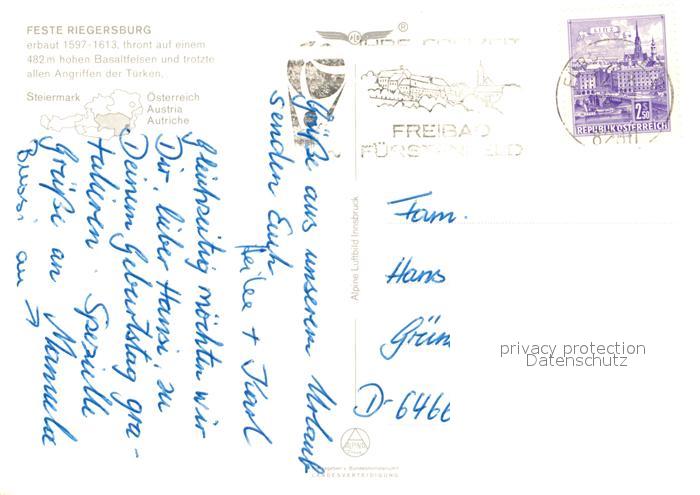 FESTE RIEGERSBURG
erbaut 1597-1613, thront auf einem
482 m hohen Basaltfelsen und trotzte
allen Angriffen der Türken.
Steiermark
Österreich
Austria
Autriche
Grüße aus unserem Urlaub
senden Euch
Heike + Karl
Gleichzeitig möchten wir
Dir, lieber Hansi, zu
Deinem Geburtstag gra-
tulieren. Spezielle
Grüße an Manuela
Bussi an →
Alpine Luftbild Innsbruck
FREIBAD
FÜRSTENFELD
LINZ
2.50
REPUBLIK ÖSTERREICH
Fam.
Hans
Grün
D-6466
privacy protection
Datenschutz
ALPINE
LANDESVERTEIDIGUNG